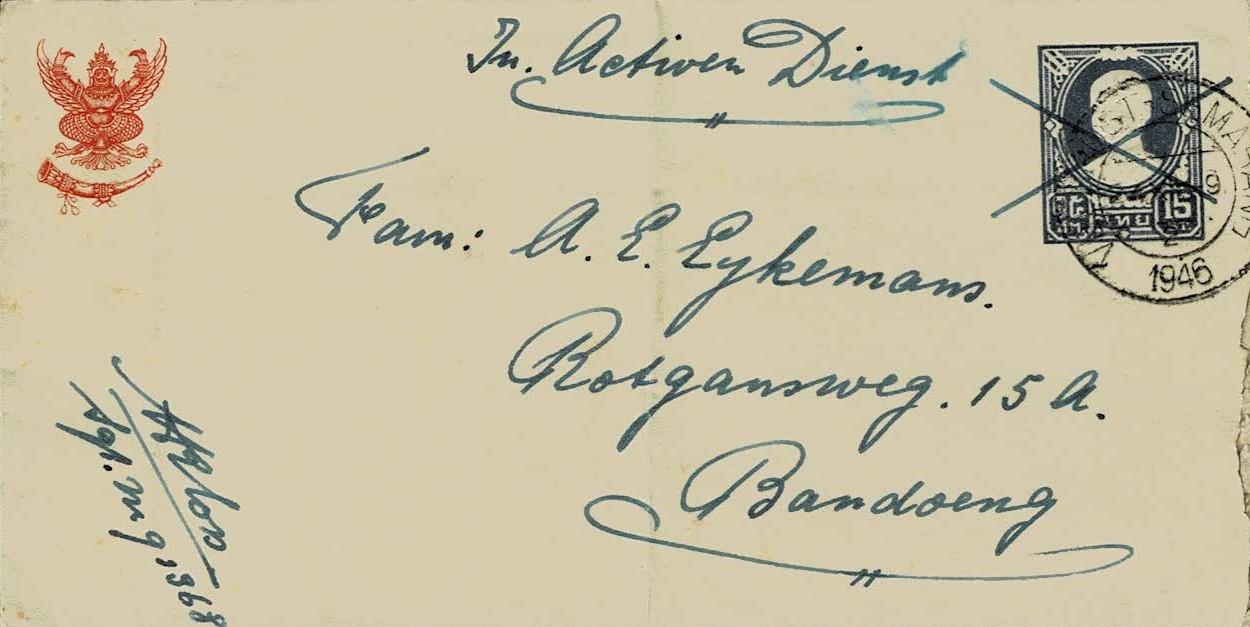 In. Actieven Dienst
Fam: A. E. Eykemans.
Rotgansweg. 15 A.
Bandoeng
15
1946
Sgt.